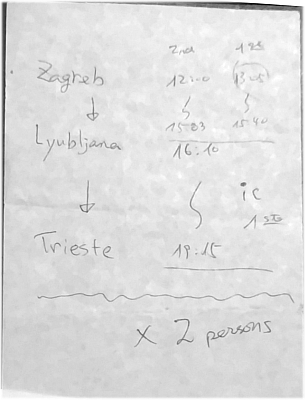 2nd 1st
Zagreb 12:10 13:05
15:03 15:40
Lyubljana 16:10
ic
1st
Trieste 19:15
x 2 persons